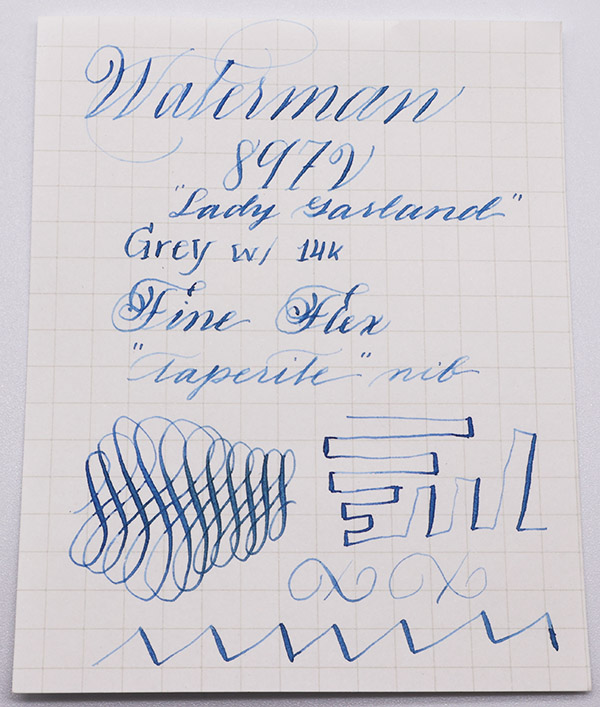 Waterman
897V
"Lady Garland"
Grey w/ 14k
Fine Flex
"Taperite" nib